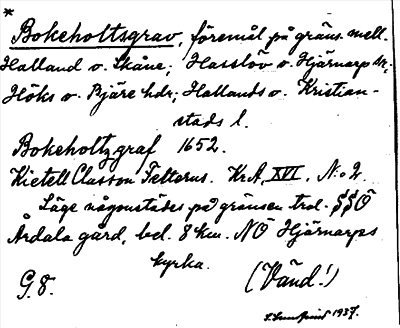 *
Bokeholtsgrav, föremål på gräns. mell.
Halland o. Skåne; Hasslöv o. Hjärnarp sn;
Höks o. Bjäre hdr; Hallands o. Kristian-
stads l.
Bokeholtz graf 1652.
Kietell Classon Felterus. Kr.A. XVI, N:o 2.
Läge någonstädes på gränsen trol. SSÖ
Årdala gård, bel. 8 km. NÖ Hjärnarps
kyrka.
G. 8. (Vänd!)
1937.